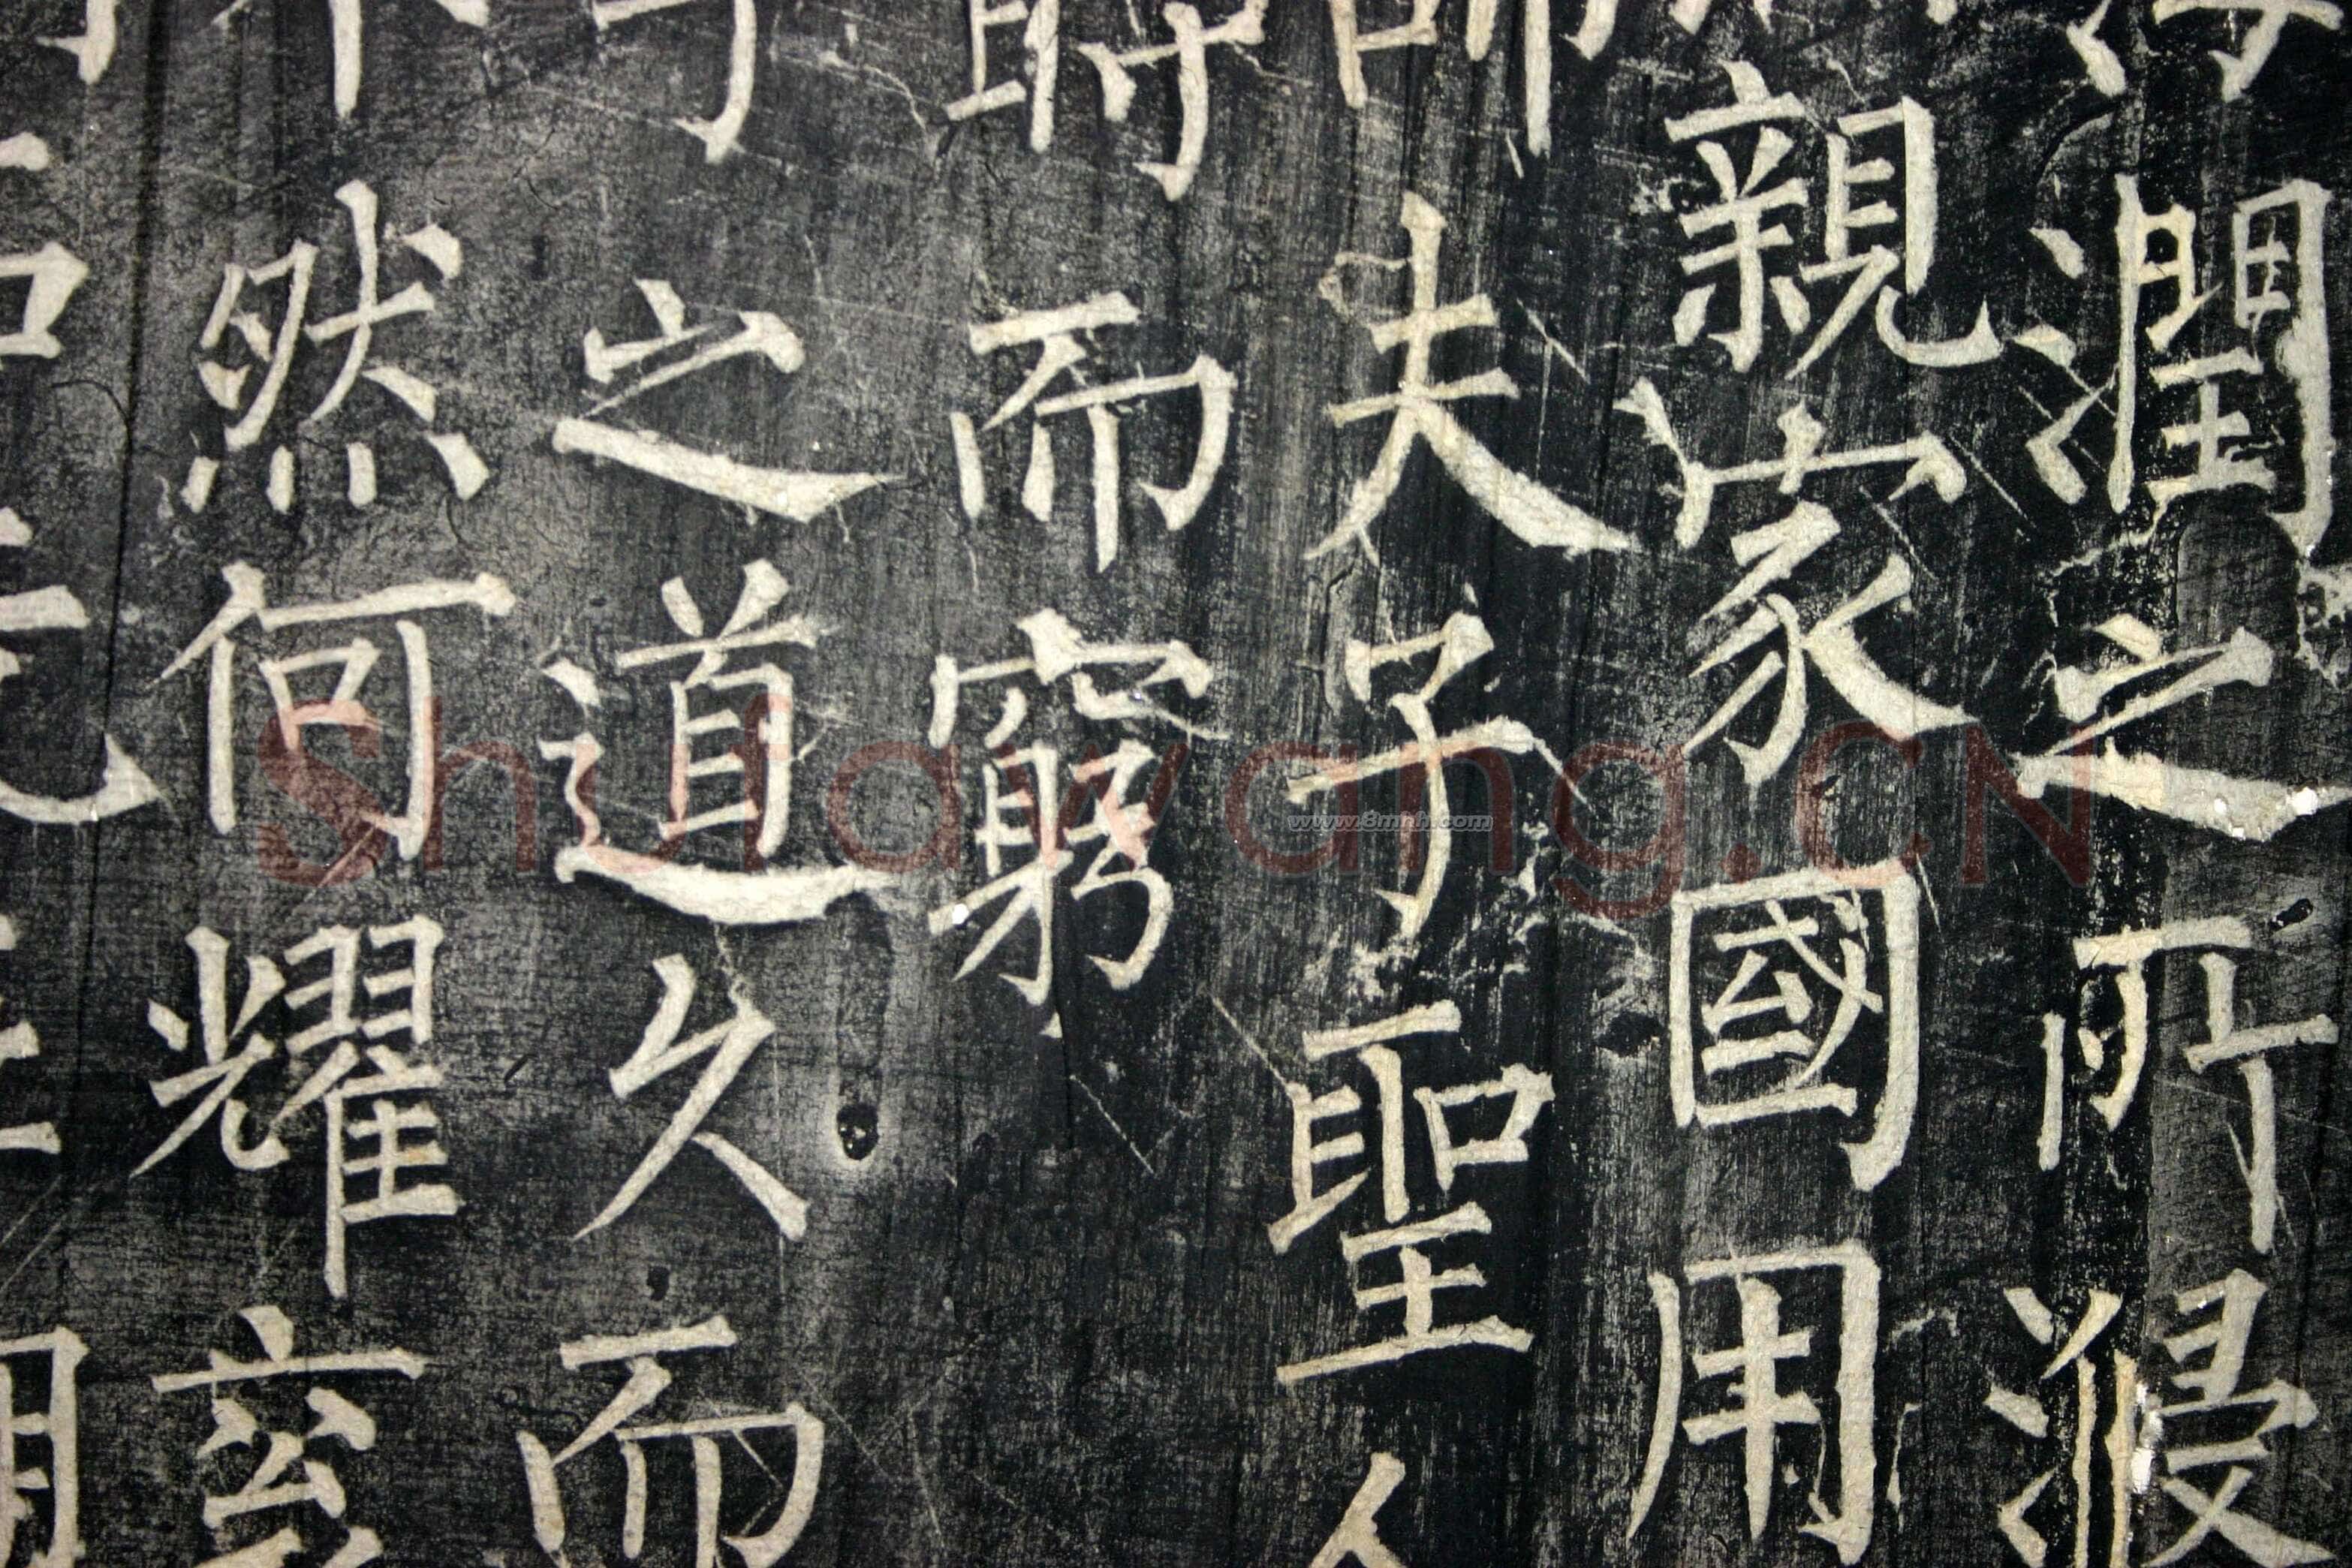 潤之所浸
親家國用
夫子聖人
而窮
之道久而
然何耀玄
Shufawang.CN
www.8mhh.com